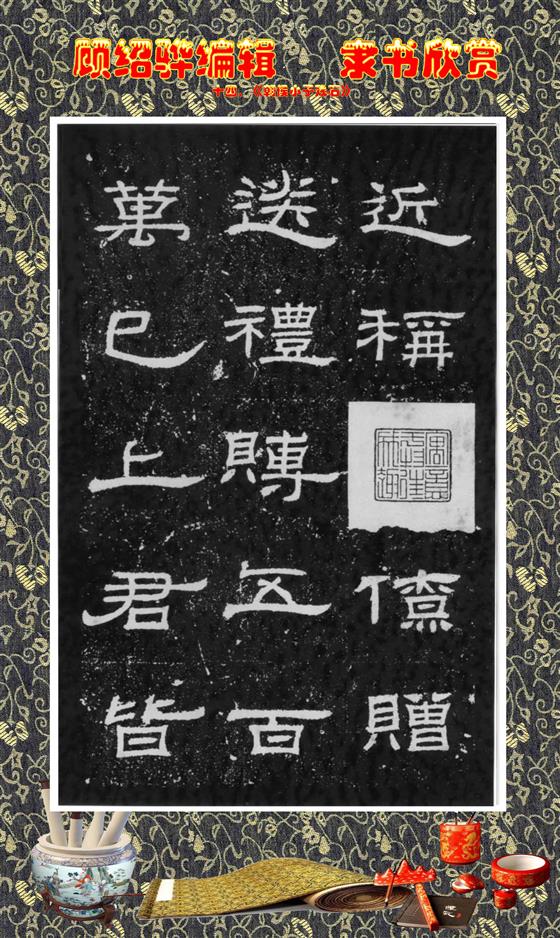 顾绍骅编辑 隶书欣赏
十四、《侯小子残石》
近稱僚贈
送禮賻五百
萬已上君皆